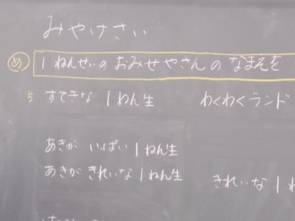 みやけさい
め １ねんせいの おみせやさんの なまえを
5 すてきな １ねん生 わくわくランド
あきが いっぱい １ねん生
あきが きれいな １ねん生 きれいな １